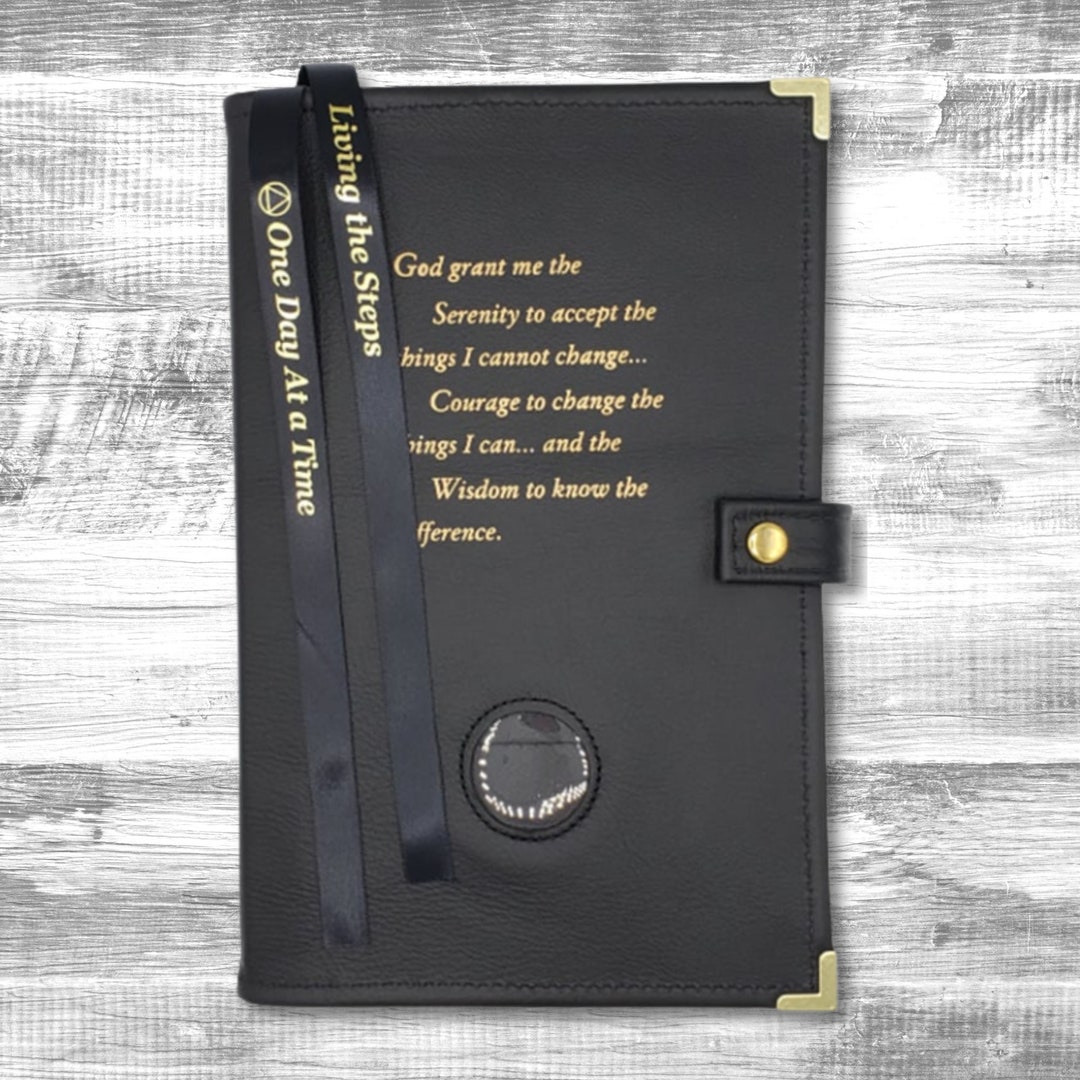 Living the Steps
One Day At a Time
God grant me the
Serenity to accept the
hings I cannot change...
Courage to change the
hings I can... and the
Wisdom to know the
fference.